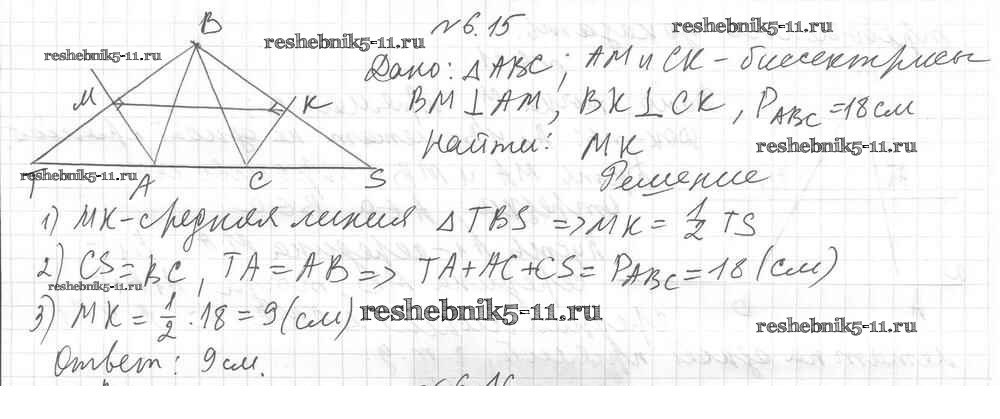 №6.15
reshebnik5-11.ru
reshebnik5-11.ru
reshebnik5-11.ru
B
Дано: △ABC; AM и CK - биссектрисы
M K
BM⊥AM, BK⊥CK, P_ABC = 18 см
Найти: MK
reshebnik5-11.ru
T A C S
reshebnik5-11.ru
Решение
1) MK - средняя линия △TBS => MK = 1/2 TS
2) CS = BC, TA = AB => TA + AC + CS = P_ABC = 18 (см)
reshebnik5-11.ru
3) MK = 1/2 · 18 = 9 (см)
reshebnik5-11.ru
reshebnik5-11.ru
Ответ: 9 см.